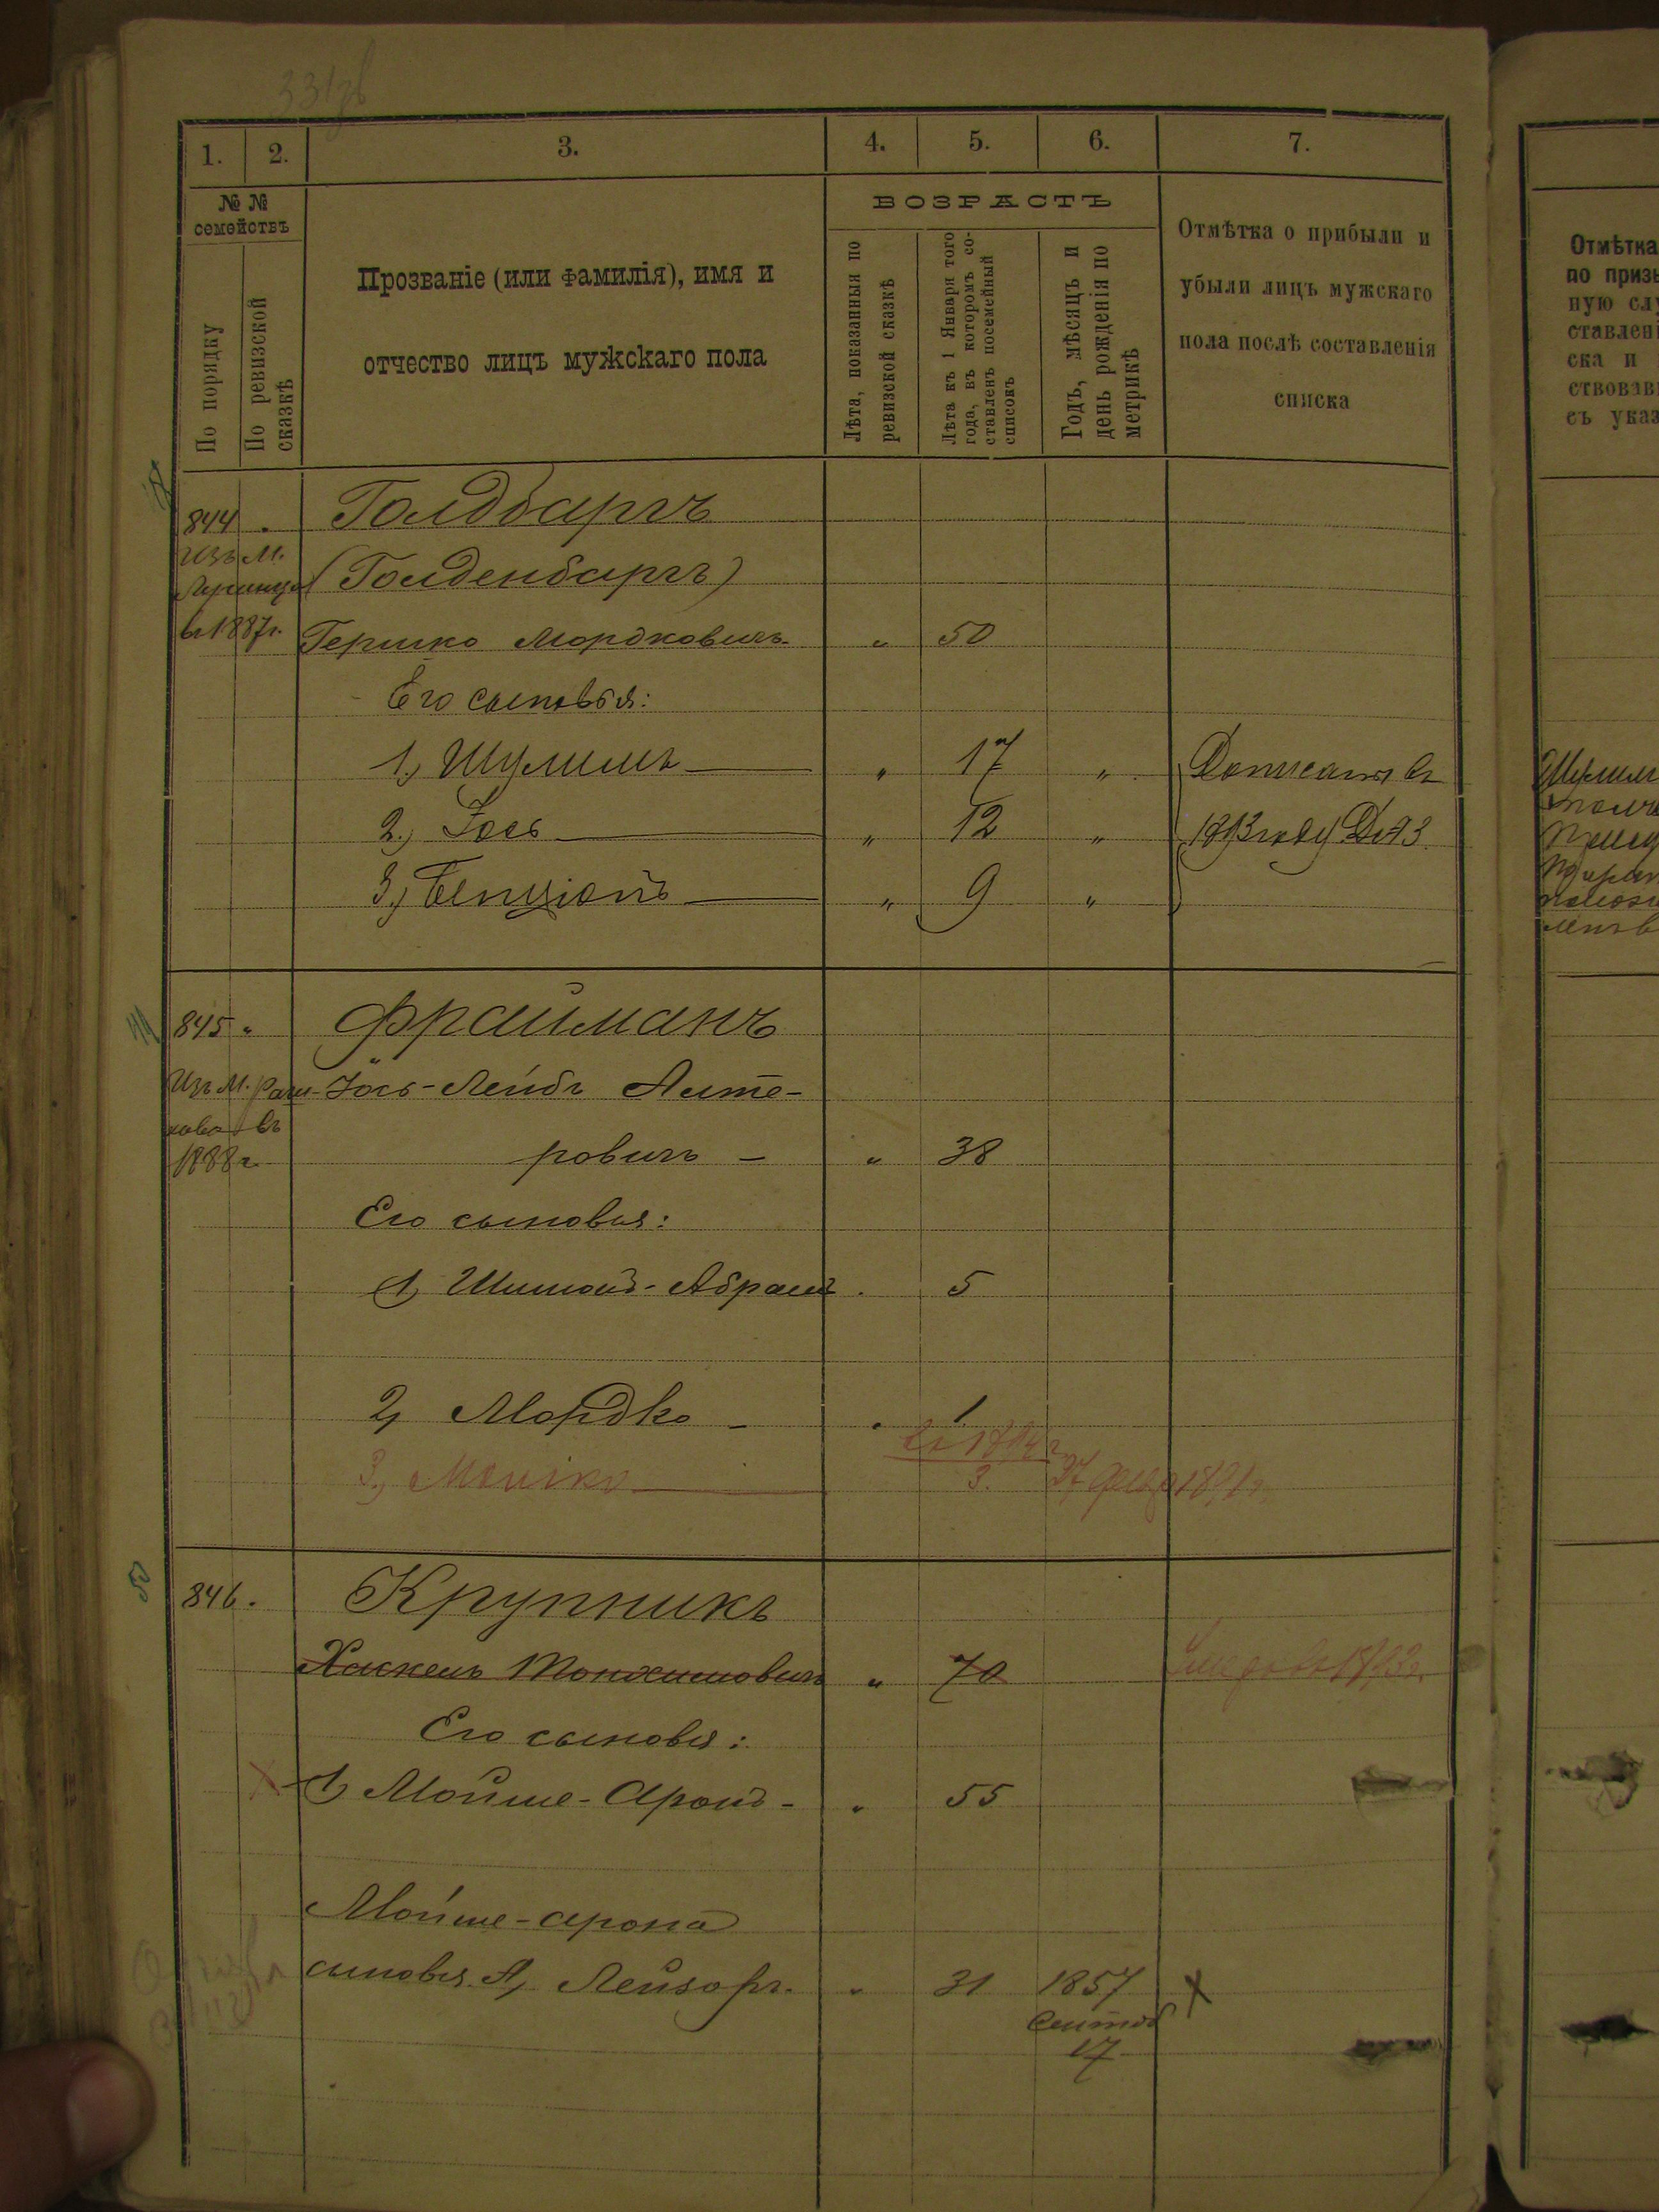 1. 2. 3. 4. 5. 6. 7.
№ №
семействъ
По порядку
По ревизской
сказкѣ
Прозваніе (или фамилія), имя и
отчество лицъ мужскаго пола
ВОЗРАСТЪ
Лѣта, показанныя по
ревизской сказкѣ
Лѣта къ 1 Января того
года, въ которомъ со-
ставленъ посемейный
списокъ
Годъ, мѣсяцъ и
день рожденія по
метрикѣ
Отмѣтка о прибыли и
убыли лицъ мужскаго
пола послѣ составленія
списка
Отмѣтка
по призы
ную слу
ставлені
ска и
ствовавш
съ указ
844. Голдбаргъ
Изъ м.
(Голденбаргъ)
въ 1887г. Гершко Мордковичъ „ 50
Его сыновья:
1, Шулимъ „ 17 „ Дописаны въ
2, Іось „ 12 „ 1893 году
3, Бенціонъ „ 9 „
845 „ Фрайманъ
Изъ м. Раш- Іось-Лейбъ Алте-
кова въ
1888г. ровичъ – „ 38
Его сыновья:
1, Шимонъ-Абрамъ . 5
2, Мордко – . 1
въ 1894г.
3, Мошко 3. 27 1891г.
846. Крупникъ
Хаскель „ 70 1893г.
Его сыновья:
1, Мойше-Аронъ - „ 55
Мойше-Арона
сыновья А, Лейзоръ. „ 31 1857
Сентяб
17